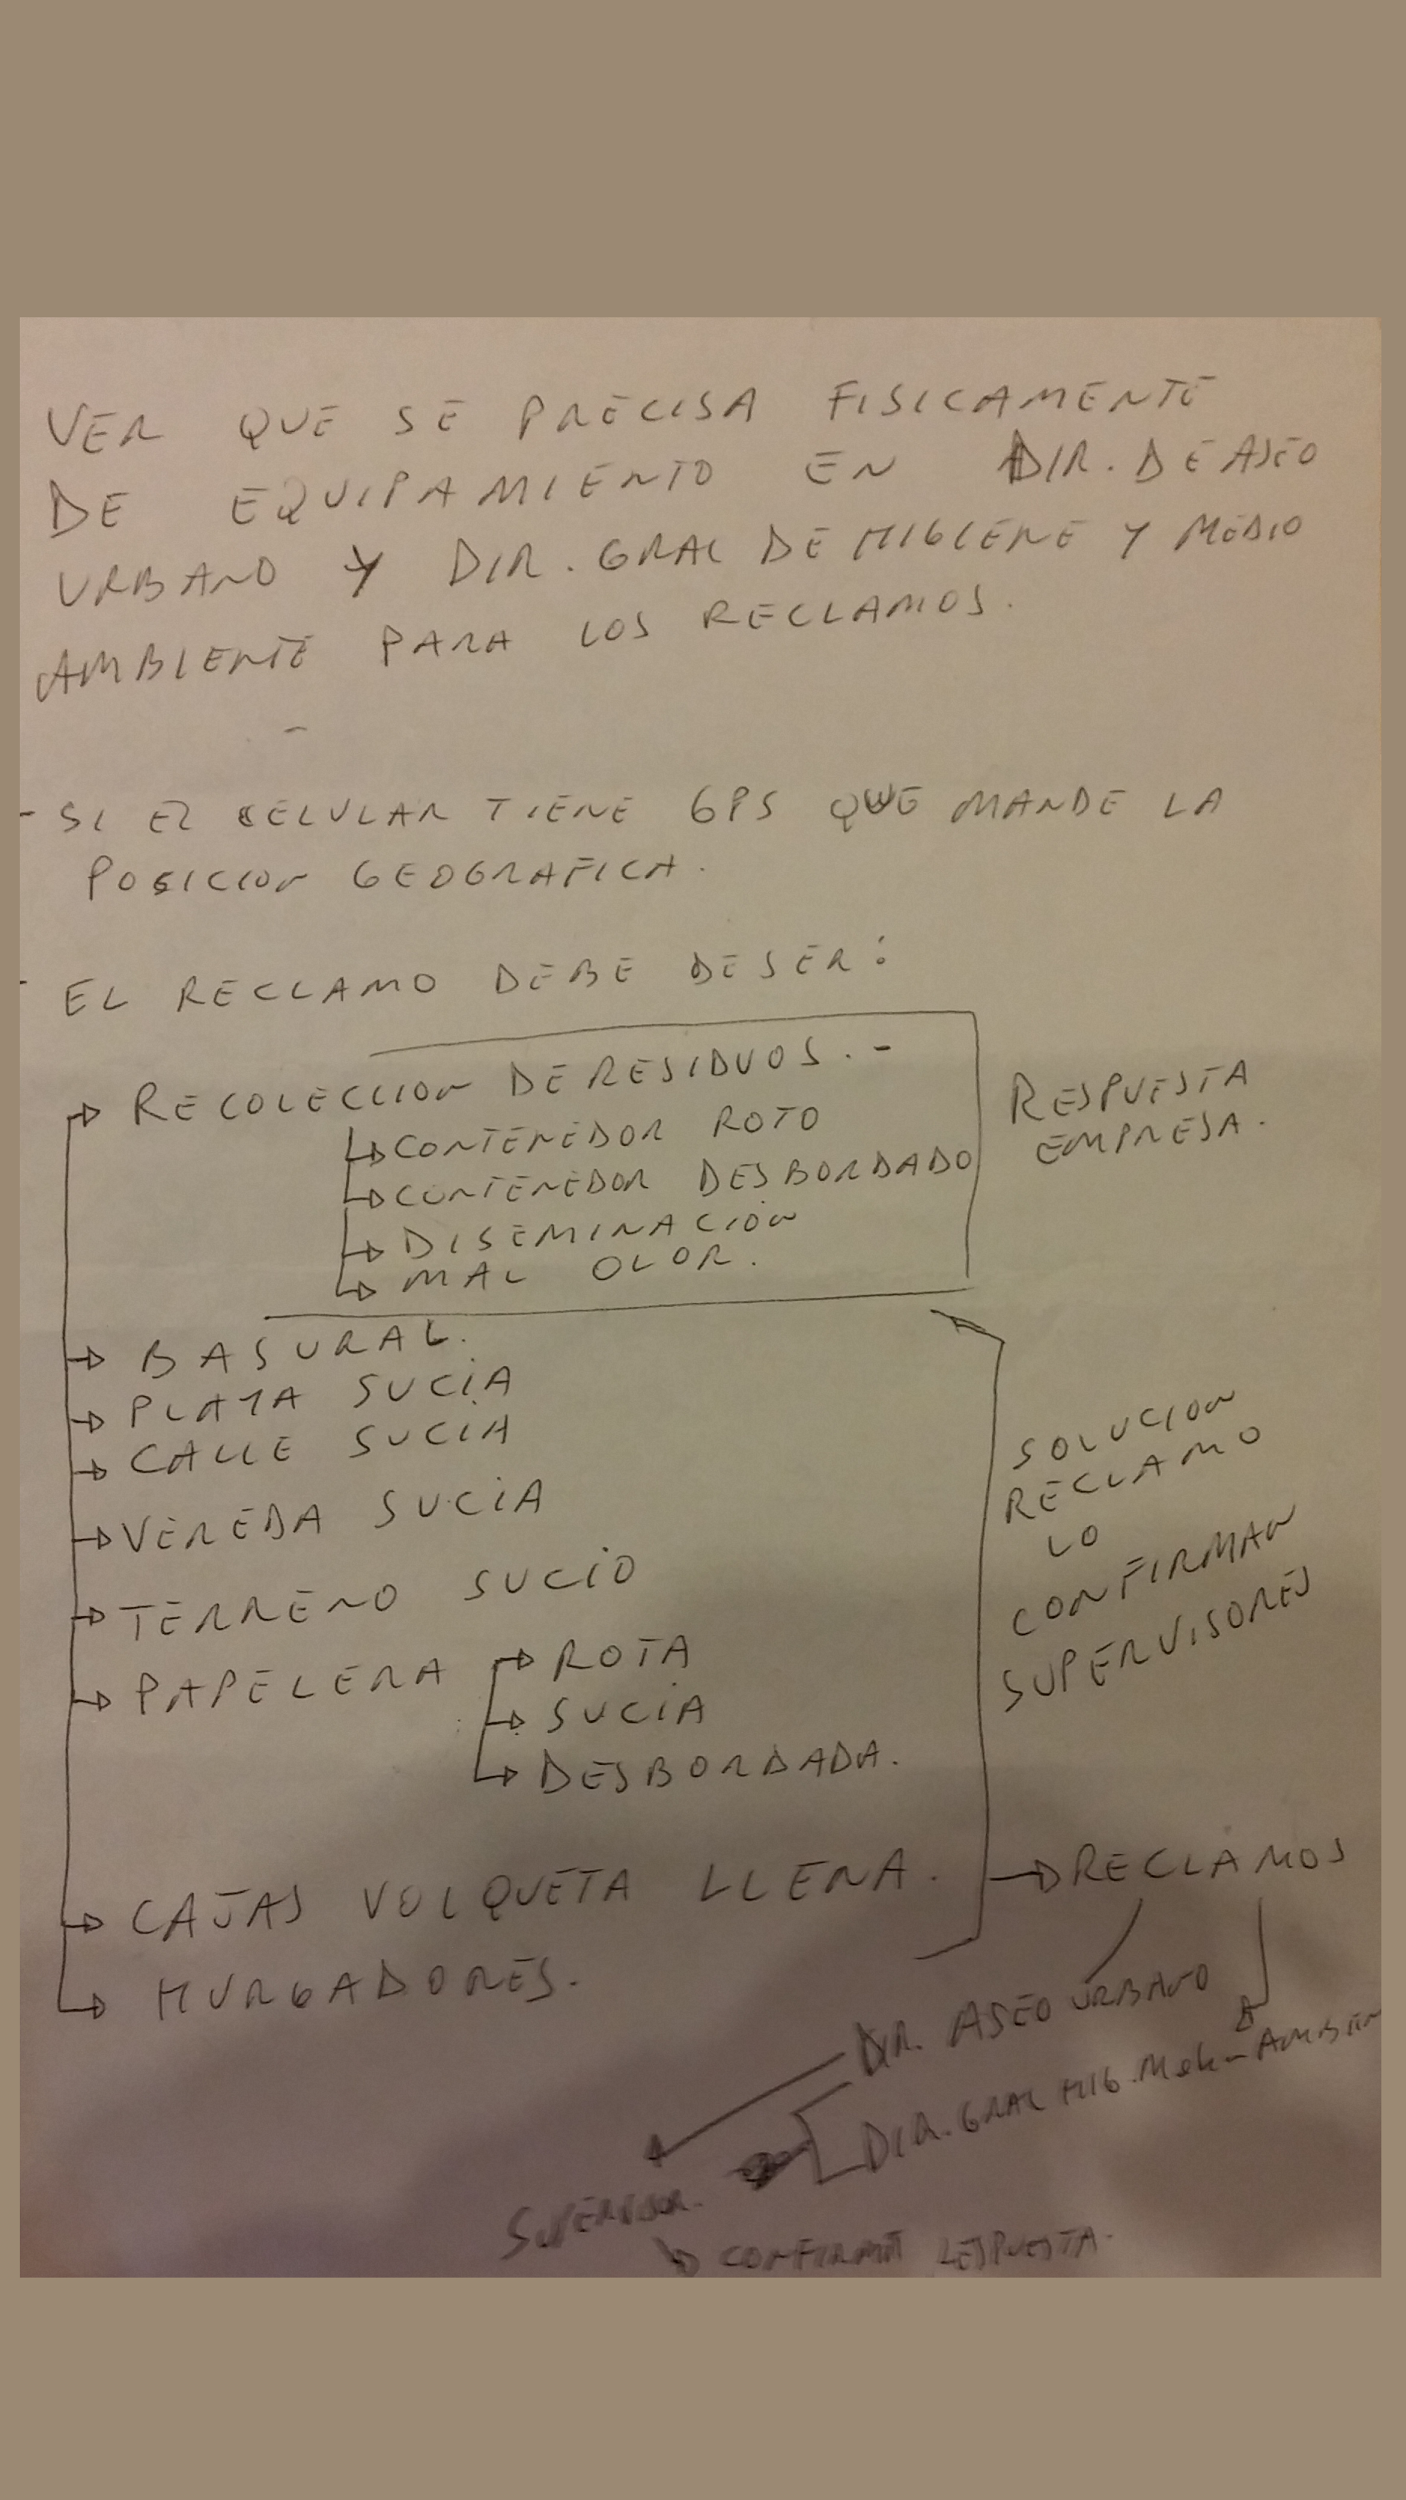 VER QUE SE PRECISA FISICAMENTE
DE EQUIPAMIENTO EN DIR. DE ASEO
URBANO Y DIR. GRAL DE HIGIENE Y MEDIO
AMBIENTE PARA LOS RECLAMOS.
- SI EL CELULAR TIENE GPS QUE MANDE LA
POSICION GEOGRAFICA.
- EL RECLAMO DEBE DE SER:
RECOLECCION DE RESIDUOS. -
CONTENEDOR ROTO
CONTENEDOR DESBORDADO
DISEMINACION
MAL OLOR.
RESPUESTA
EMPRESA.
BASURAL.
PLAYA SUCIA
CALLE SUCIA
VEREDA SUCIA
TERRENO SUCIO
PAPELERA
ROTA
SUCIA
DESBORDADA.
CAJAS VOLQUETA LLENA.
HURGADORES.
SOLUCION
RECLAMO
LO
CONFIRMAN
SUPERVISORES
RECLAMOS
DIR. ASEO URBANO
DIR. GRAL HIG.
SUPERVISOR.
CONFIRMA RESPUESTA.